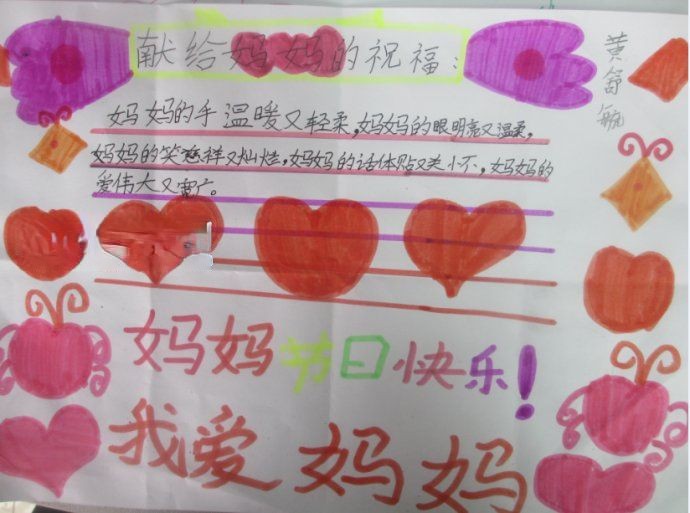 献给妈妈的祝福：
黄舒
妈妈的手温暖又轻柔，妈妈的眼明亮又温柔，
妈妈的笑慈祥又灿烂，妈妈的话体贴又
小不，妈妈的
爱伟大又宽广。
妈妈节日快乐！
我爱妈妈